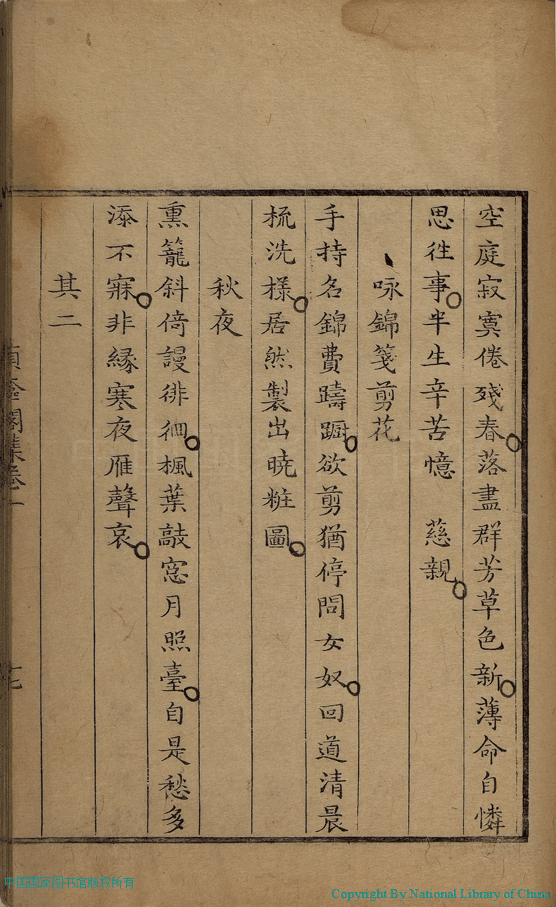 空庭寂寞倦殘春落盡群芳草色新薄命自憐
思往事半生辛苦憶 慈親
咏錦箋剪花
手持名錦費躊蹰欲剪猶停問女奴回道清晨
梳洗樣居然製出曉粧圖
秋夜
熏籠斜倚謾徘徊楓葉敲窓月照臺自是愁多
添不寐非緣寒夜雁聲哀
其二
閣集卷一
七
Copyright By National Library of China